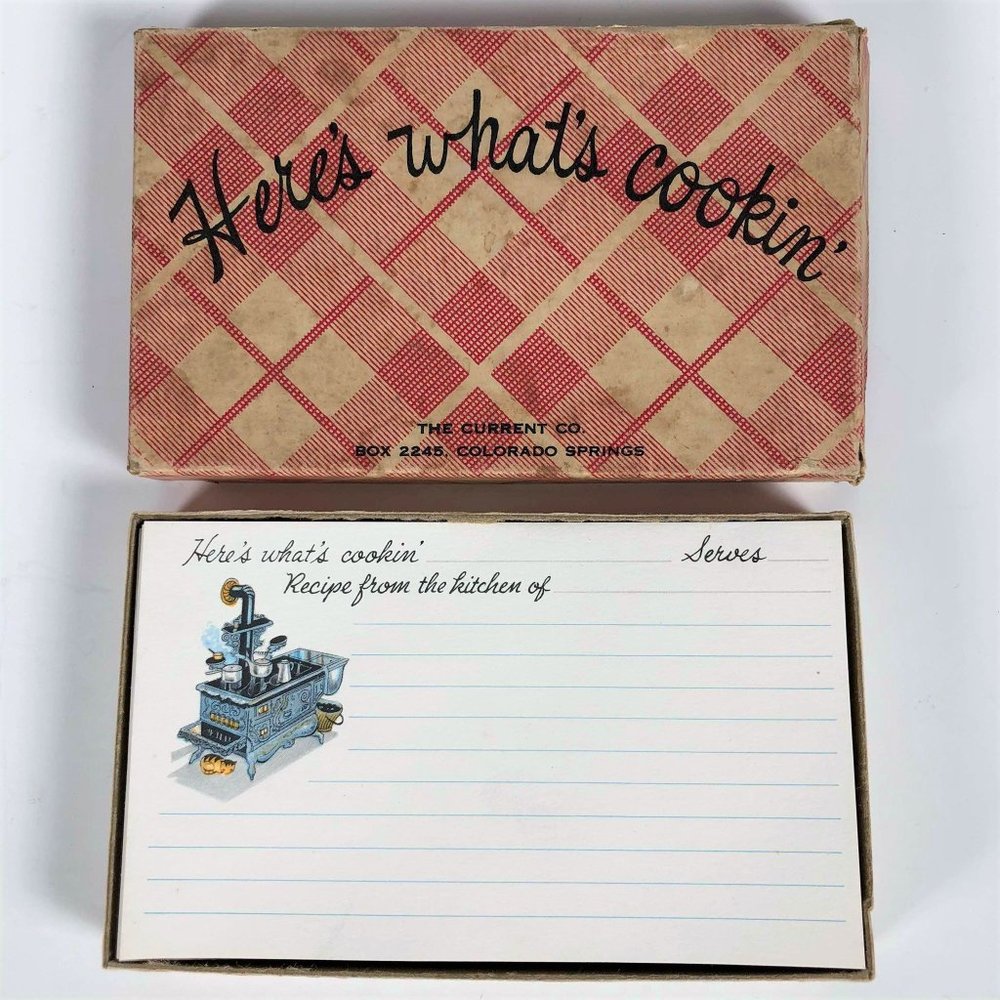 Here's what's cookin'
THE CURRENT CO.
BOX 2245, COLORADO SPRINGS
Here's what's cookin' Serves
Recipe from the kitchen of